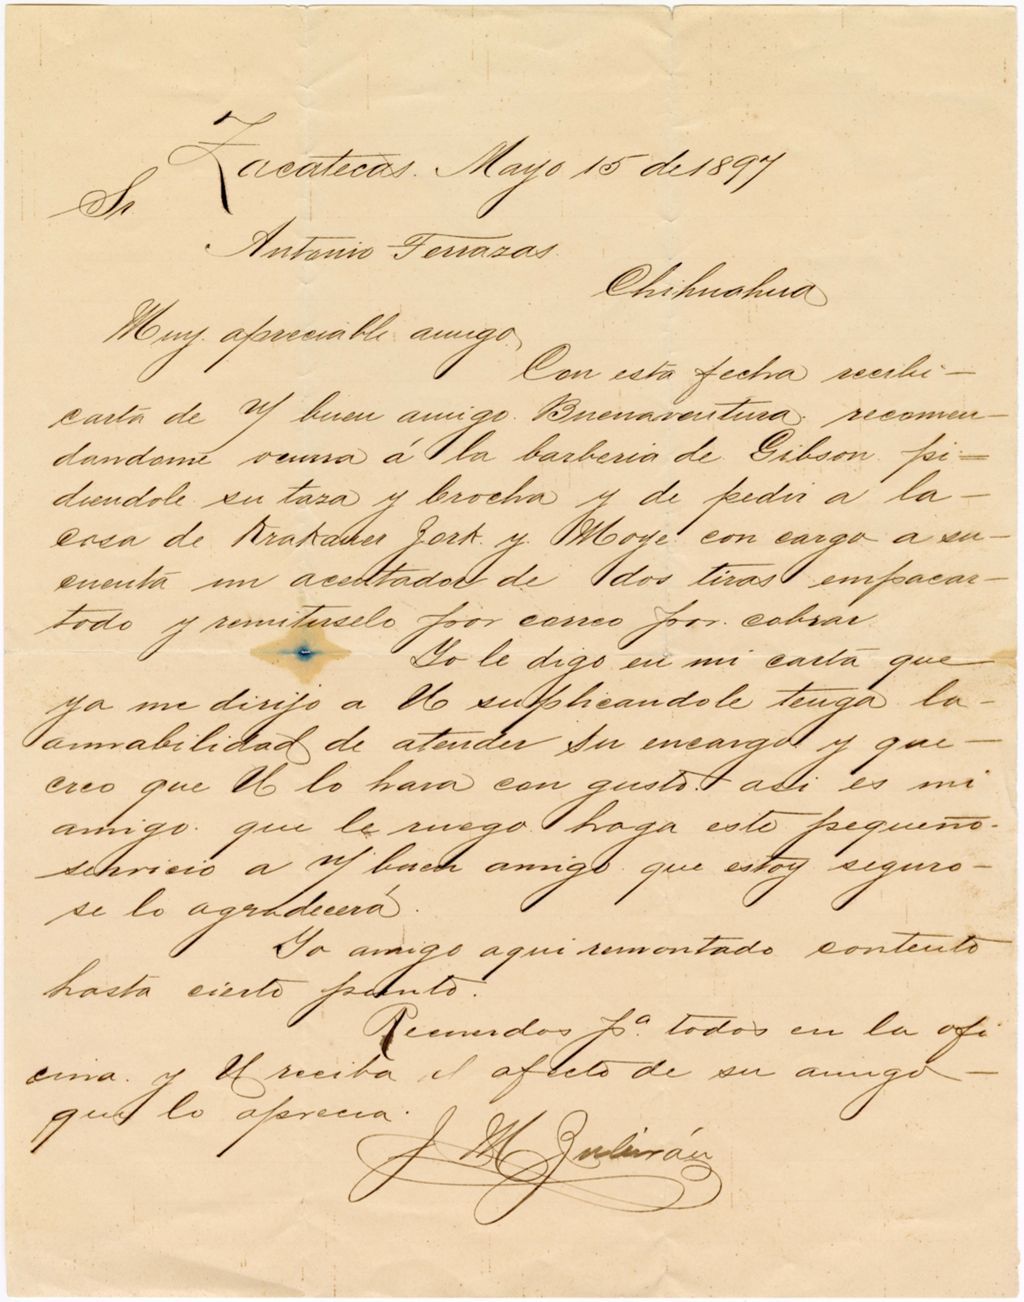 Zacatecas. Mayo 15 de 1897
Sr
Antonio Terrazas
Chihuahua
Muy apreciable amigo,
Con esta fecha recibi-
carta de N/ buen amigo Buenaventura recomen-
dandome ocurra á la barberia de Gibson pi=
diendole su taza y brocha y de pedir a la-
casa de Krakauer Zork y Moye con cargo a su-
cuenta un acentador de dos tiras empacar-
todo y remitirselo por correo por cobrar.
Yo le digo en mi carta que
ya me dirijo a U suplicandole tenga la-
amabilidad de atender su encargo y que-
creo que U lo hara con gusto. asi es mi
amigo que le ruego haga este pequeño-
servicio a N/ buen amigo que estoy seguro-
se lo agradecerá.
Yo amigo aqui remontado contento
hasta cierto punto.
Recuerdos pa todos en la ofi
cina y U reciba el afecto de su amigo-
que lo aprecia.
J M Zubirán